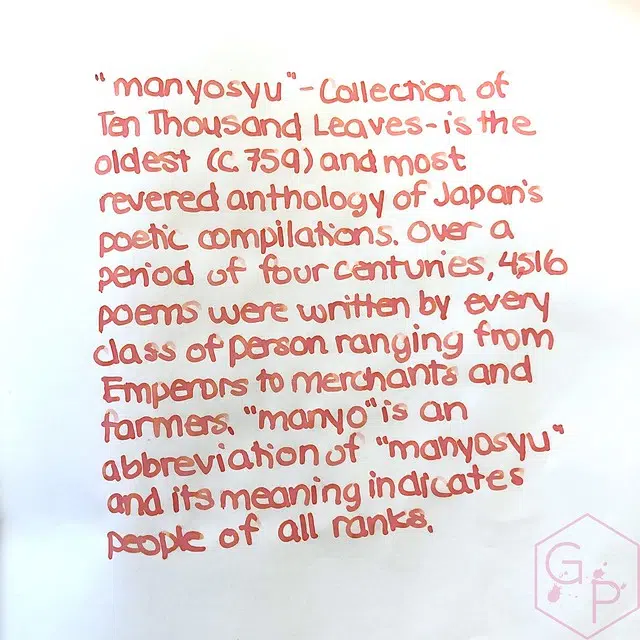 "manyosyu" - Collection of
Ten Thousand Leaves - is the
oldest (c. 759) and most
revered anthology of Japan's
poetic compilations. Over a
period of four centuries, 4,516
poems were written by every
class of person ranging from
Emperors to merchants and
farmers. "manyo" is an
abbreviation of "manyosyu"
and its meaning indicates
people of all ranks.
G P